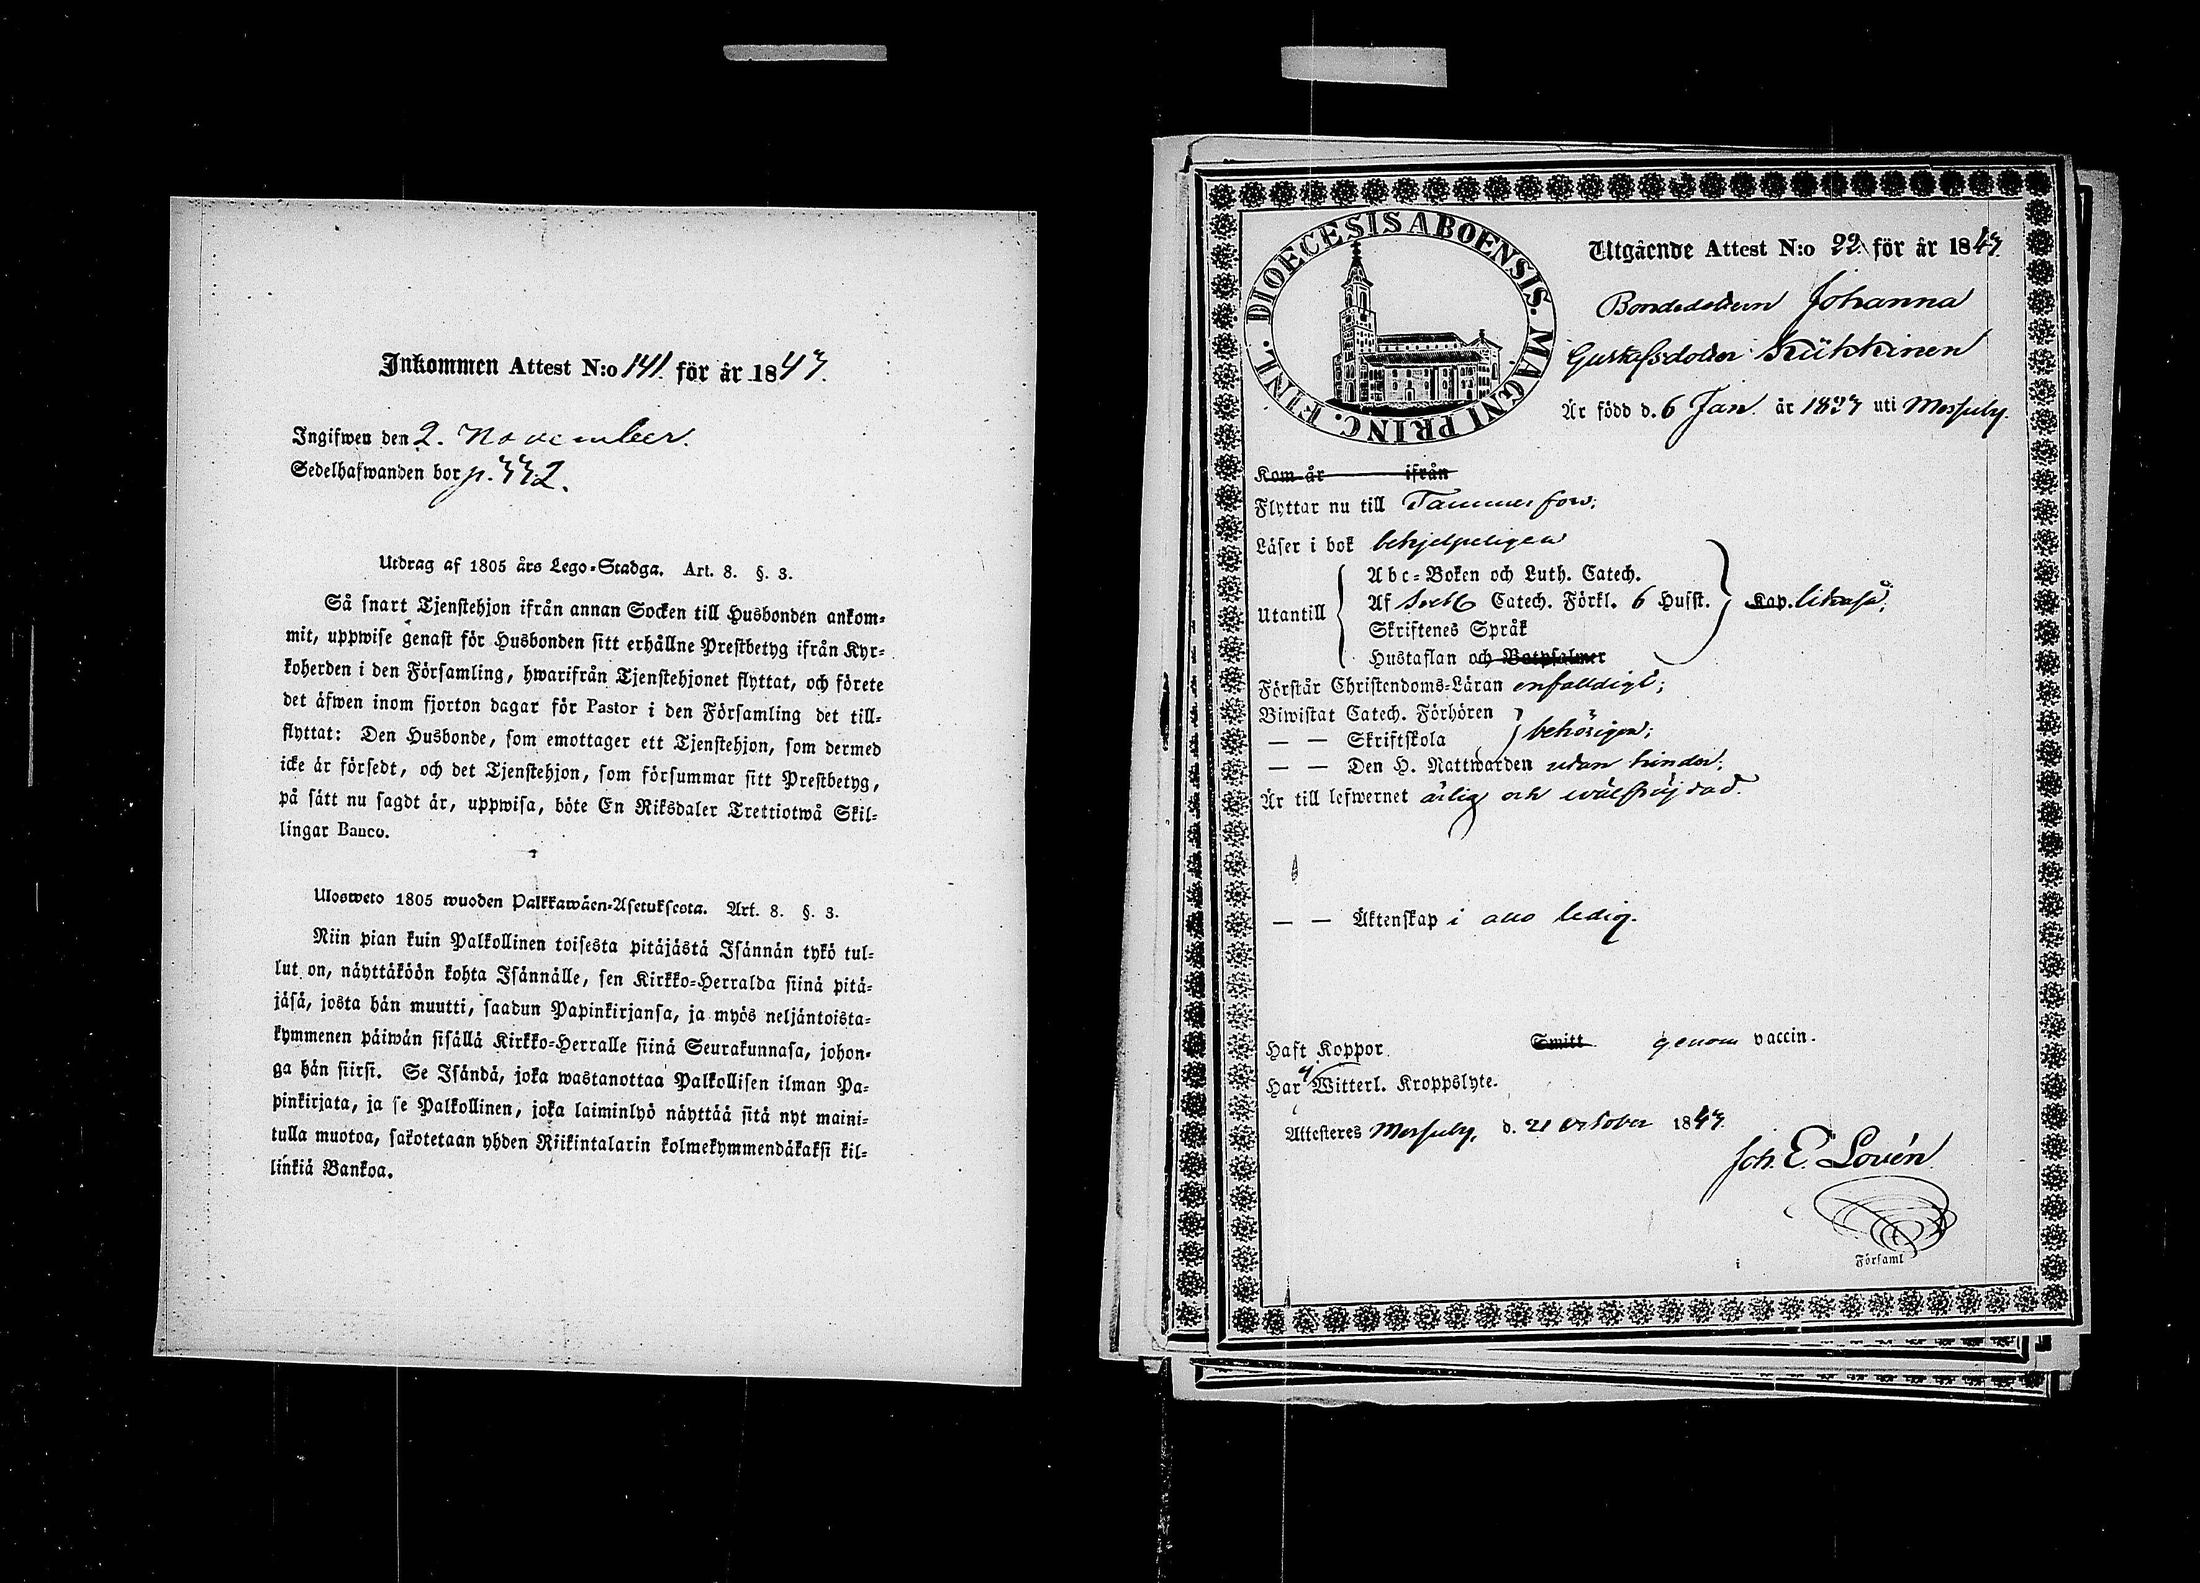 Inkommen Attest N:o 141. för år 1843.
Ingifwen den 2. November.
Sedelhafwanden bor p. 332.
Utdrag af 1805 års Lego-Stadga. Art. 8. §. 3.
Så snart Tjenstehjon ifrån annan Socken till Husbonden ankom-
mit, uppwise genast för Husbonden sitt erhållne Prestbetyg ifrån Kyr-
koherden i den Församling, hwarifrån Tjenstehjonet flyttat, och förete
det äfwen inom fjorton dagar för Pastor i den Församling det till-
flyttat: Den Husbonde, som emottager ett Tjenstehjon, som dermed
icke är försedt, och det Tjenstehjon, som försummar sitt Prestbetyg,
på sätt nu sagdt är, uppwisa, böte En Riksdaler Trettiotwå Skil-
lingar Banco.
Ulosweto 1805 wuoden Palkkawäen-Asetuksesta. Art. 8. §. 3.
Niin pian kuin Palkollinen toisesta pitäjästä Isännän tykö tul-
lut on, näyttäköön kohta Isännälle, sen Kirkko-Herralda siinä pitä-
jäsä, josta hän muutti, saadun Papinkirjansa, ja myös neljäntoista-
kymmenen päiwän sisällä Kirkko-Herralle siinä Seurakunnasa, johon-
ga hän siirsi. Se Isändä, joka wastanottaa Palkollisen ilman Pa-
pinkirjata, ja se Palkollinen, joka laiminlyö näyttää sitä nyt maini-
tulla muotoa, sakotetaan yhden Riikintalarin kolmekymmendäkaksi kil-
linkiä Bankoa.
DIOECESIS ABOENSIS. MAGNI PRINC. FINL.
Utgående Attest N:o 22 för år 1843.
Bondedottern Johanna
Gustafsdotter
Är född d. 6 Jan. år 1823 uti Messuby.
Kom år ifrån
Flyttar nu till Tammerfors;
Läser i bok behjelpeligen
Utantill
Abc-Boken och Luth. Catech.
Af Catech. Förkl. 6 Husst. Kap. likaså;
Skriftenes Språk
Hustaflan och Botpsalmer
Förstår Christendoms-Läran enfaldigt;
Biwistat Catech. Förhören
— — Skriftskola behörigen;
— — Den H. Nattwarden utan hinder;
Är till lefwernet ärlig och wälfräjdad.
— — Äktenskap ledig.
Haft Koppor Smitt genom vaccin.
Har ej Witterl. Kroppslyte.
Attesteres Messuby, d. 21 October 1843.
Joh. E. Lovén
Församl